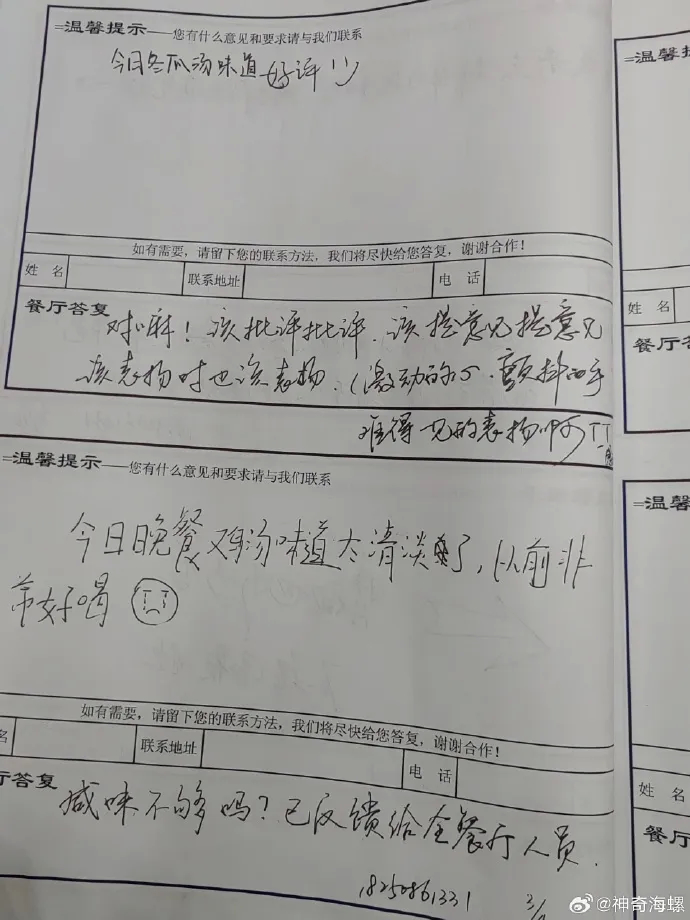 =温馨提示——您有什么意见和要求请与我们联系
今日冬瓜汤味道好评！！
如有需要，请留下您的联系方法，我们将尽快给您答复，谢谢合作！
姓 名 联系地址 电 话
餐厅答复
对嘛！该批评批评．该提意见提意见
该表扬时也该表扬．(激动的心．颤抖的手
难得一见的表扬啊TT
=温馨提示——您有什么意见和要求请与我们联系
今日晚餐鸡汤味道太清淡了，从前非
常好喝
如有需要，请留下您的联系方法，我们将尽快给您答复，谢谢合作！
名 联系地址 电 话
厅答复
咸味不够吗？已反馈给全餐厅人员．
18250861331
=温馨提
姓 名
餐厅答
=温馨
姓 名
餐厅
@神奇海螺